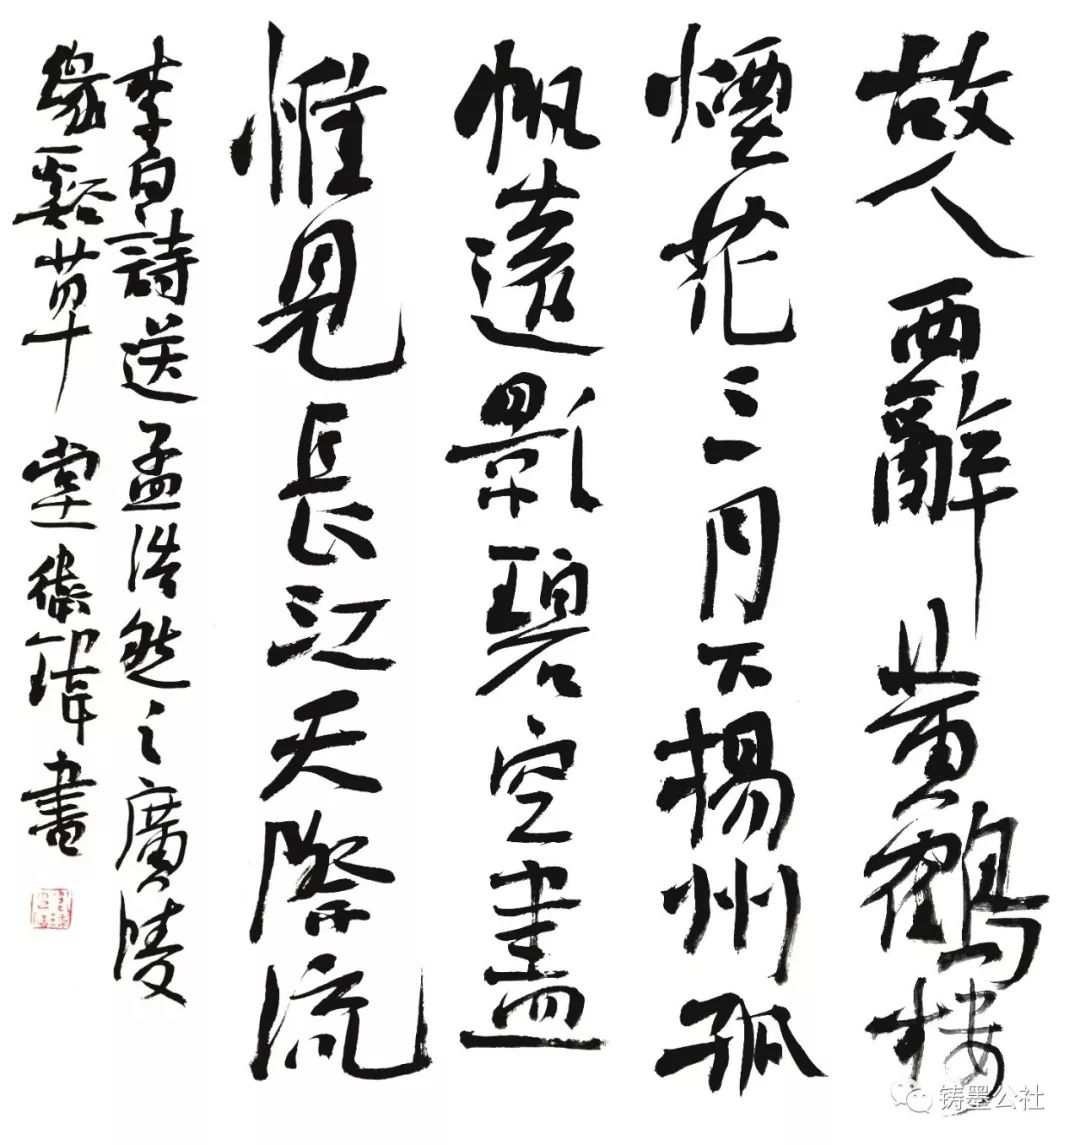 故人西辭黄鶴楼
煙花三月下揚州孤
帆遠影碧空盡
惟見長江天際流
李白詩送孟浩然之廣陵
谿草堂 書
铸墨公社